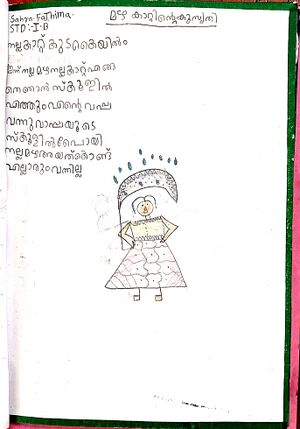 Sahra Fathima
STD:-I-B
മഴ കാറ്റിന്റെകുസൃതി
നല്ലകാറ്റ് കുടകൈയിൽ
ഇന്ന് നല്ല മഴനല്ലകാറ്റ്
ഞാൻ സ്കൂളിൽ
എത്തും എന്റെ വാപ്പ
വന്നുവാപ്പയുടെ
സ്കൂളിൽപോയി
നല്ലമഴആയത്കൊണ്ട്
എല്ലാരുംവന്നില്ല